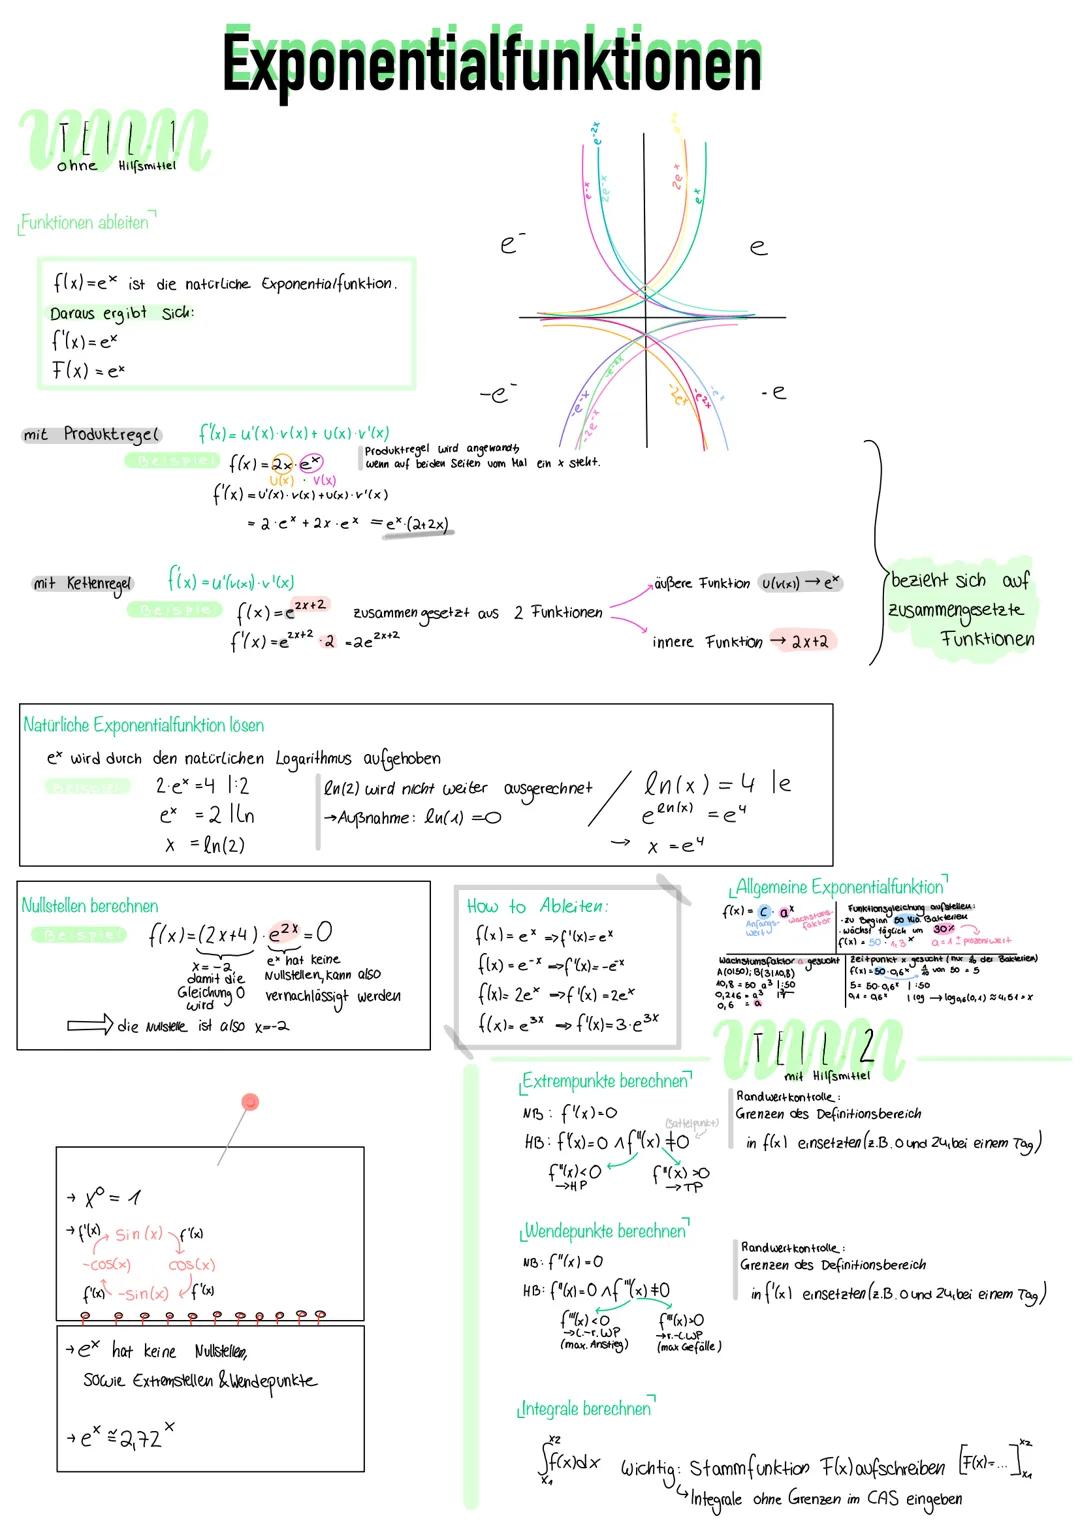 Exponentialfunktionen
TEIL 1
ohne Hilfsmittel
Funktionen ableiten
f(x)=eˣ ist die natürliche Exponentialfunktion.
Daraus ergibt sich:
f'(x)=eˣ
F(x)=eˣ
e⁻ˣ
e⁻²ˣ
2e⁻ˣ
2eˣ
eˣ
e⁻
e
-e⁻
-e
-e⁻ˣ
-2e⁻ˣ
-e⁻²ˣ
-2eˣ
-e²ˣ
-eˣ
mit Produktregel f'(x)=u'(x)·v(x)+u(x)·v'(x)
Beispiel f(x)=2x·eˣ
u(x) · v(x)
Produktregel wird angewandt,
wenn auf beiden Seiten vom Mal ein x steht.
f'(x)=u'(x)·v(x)+u(x)·v'(x)
= 2·eˣ+2x·eˣ =eˣ·(2+2x)
mit Kettenregel f'(x)=u'(v(x))·v'(x)
Beispiel f(x)=e²ˣ⁺² zusammengesetzt aus 2 Funktionen
f'(x)=e²ˣ⁺²·2 =2e²ˣ⁺²
äußere Funktion u(v(x)) → eˣ
innere Funktion → 2x+2
bezieht sich auf
zusammengesetzte
Funktionen
Natürliche Exponentialfunktion lösen
eˣ wird durch den natürlichen Logarithmus aufgehoben
Beispiel 2·eˣ=4 |:2
eˣ =2 |ln
x =ln(2)
ln(2) wird nicht weiter ausgerechnet
→Außnahme: ln(1)=0
ln(x)=4 |e
e^ln(x) =e⁴
→ x =e⁴
Nullstellen berechnen
Beispiel f(x)=(2x+4)·e²ˣ=0
x=-2
damit die
Gleichung 0
wird
eˣ hat keine
Nullstellen, kann also
vernachlässigt werden
⇒ die Nullstelle ist also x=-2
How to Ableiten:
f(x)=eˣ ⇒f'(x)=eˣ
f(x)=e⁻ˣ ⇒f'(x)=-eˣ
f(x)=2eˣ ⇒f'(x)=2eˣ
f(x)=e³ˣ ⇒f'(x)=3·e³ˣ
Allgemeine Exponentialfunktion
f(x)= c · aˣ
Anfangs-
wert
Wachstums-
faktor
Funktionsgleichung aufstellen:
· zu Beginn 50 Mio. Bakterien
· wächst täglich um 30%
f(x)=50·1,3ˣ a=1±prozentwert
Wachstumsfaktor a gesucht
A(0|50); B(3|10,8)
10,8=50·a³ |:50
0,216=a³ |³√
0,6 = a
Zeitpunkt x gesucht (nur 1/10 der Bakterien)
f(x)=50·0,6ˣ 1/10 von 50 = 5
5=50·0,6ˣ |:50
0,1=0,6ˣ |log → log0,6(0,1) ≈ 4,51 = x
TEIL 2
mit Hilfsmittel
Extrempunkte berechnen
NB: f'(x)=0
HB: f'(x)=0 ∧ f''(x)≠0
(Sattelpunkt)
f''(x)<0
→HP
f''(x)>0
→TP
Randwertkontrolle:
Grenzen des Definitionsbereich
in f(x) einsetzten (z.B. 0 und 24, bei einem Tag)
Wendepunkte berechnen
NB: f''(x)=0
HB: f''(x)=0 ∧ f'''(x)≠0
f'''(x)<0
→l.-r. WP
(max. Anstieg)
f'''(x)>0
→r.-l. WP
(max Gefälle)
Randwertkontrolle:
Grenzen des Definitionsbereich
in f'(x) einsetzten (z.B. 0 und 24, bei einem Tag)
Integrale berechnen
∫f(x)dx
x2
x1
Wichtig: Stammfunktion F(x) aufschreiben [F(x)=...]
x2
x1
↳Integrale ohne Grenzen im CAS eingeben
→ x⁰ = 1
→ f'(x) sin(x) f'(x)
-cos(x) cos(x)
f'(x) -sin(x) f'(x)
→ eˣ hat keine Nullstellen,
sowie Extremstellen & Wendepunkte
→ eˣ ≅ 2,72ˣ